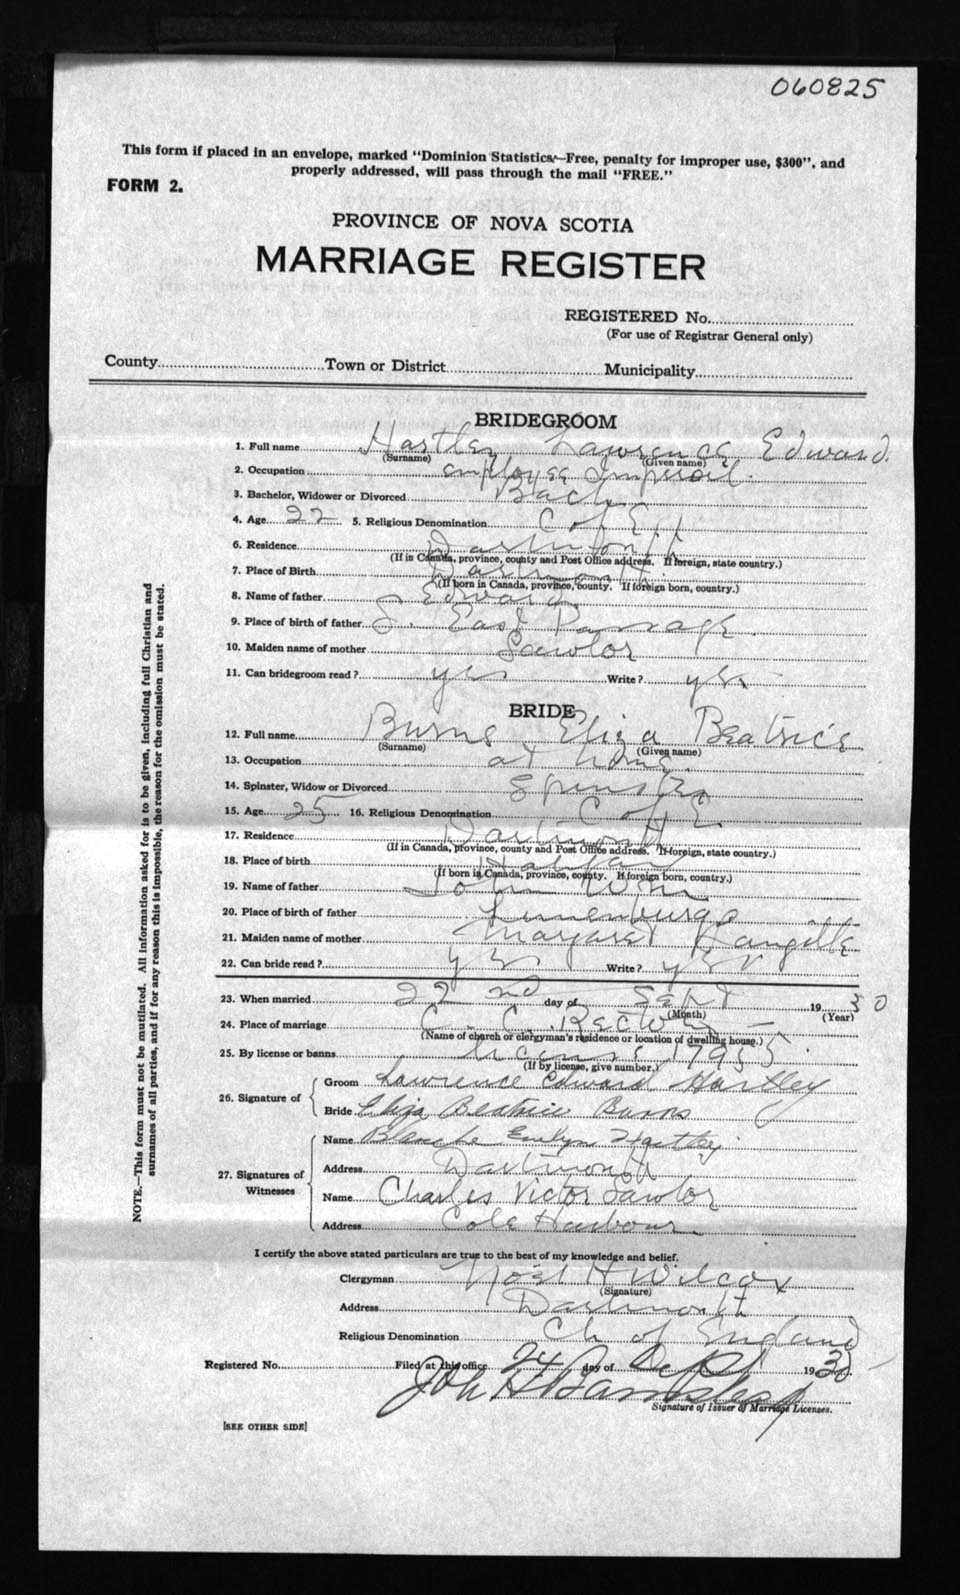 060825
This form if placed in an envelope, marked "Dominion Statistics—Free, penalty for improper use, $300", and
properly addressed, will pass through the mail "FREE."
FORM 2.
PROVINCE OF NOVA SCOTIA
MARRIAGE REGISTER
REGISTERED No.
(For use of Registrar General only)
County Town or District Municipality
BRIDEGROOM
1. Full name Hartley Lawrence Edward
(Surname) (Given name)
2. Occupation employee Imperoil.
3. Bachelor, Widower or Divorced Bach
4. Age 22 5. Religious Denomination C of E
6. Residence Dartmouth
(If in Canada, province, county and Post Office address. If foreign, state country.)
7. Place of Birth Dartmouth
(If born in Canada, province, county. If foreign born, country.)
8. Name of father Edward
9. Place of birth of father S. East Passage
10. Maiden name of mother Lawlor
11. Can bridegroom read? yes Write? yes
BRIDE
12. Full name Burns Eliza Beatrice
(Surname) (Given name)
13. Occupation at home
14. Spinster, Widow or Divorced Spinster
15. Age 25 16. Religious Denomination C of E
17. Residence Dartmouth
(If in Canada, province, county and Post Office address. If foreign, state country.)
18. Place of birth Halifax
(If born in Canada, province, county. If foreign born, country.)
19. Name of father John Wm
20. Place of birth of father Lunenburg
21. Maiden name of mother Margaret Langille
22. Can bride read? yes Write? yes
23. When married 22nd day of Sept 1930
(Month) (Year)
24. Place of marriage C. C. Rectory
(Name of church or clergyman's residence or location of dwelling house.)
25. By license or banns license 17955
(If by license, give number.)
26. Signature of Groom Lawrence Edward Hartley
Bride Eliza Beatrice Burns
27. Signatures of Witnesses
Name Blanche Evelyn Hartley
Address Dartmouth
Name Charles Victor Lawlor
Address Cole Harbour
I certify the above stated particulars are true to the best of my knowledge and belief.
Clergyman Noel H Wilcox
(Signature)
Address Dartmouth
Religious Denomination Ch of England
Registered No. Filed at this office 24 day of Sept 1930
Signature of Issuer of Marriage Licenses.
[SEE OTHER SIDE]
NOTE.—This form must not be mutilated. All information asked for is to be given, including full Christian and
surnames of all parties, and if for any reason this is impossible, the reason for the omission must be stated.